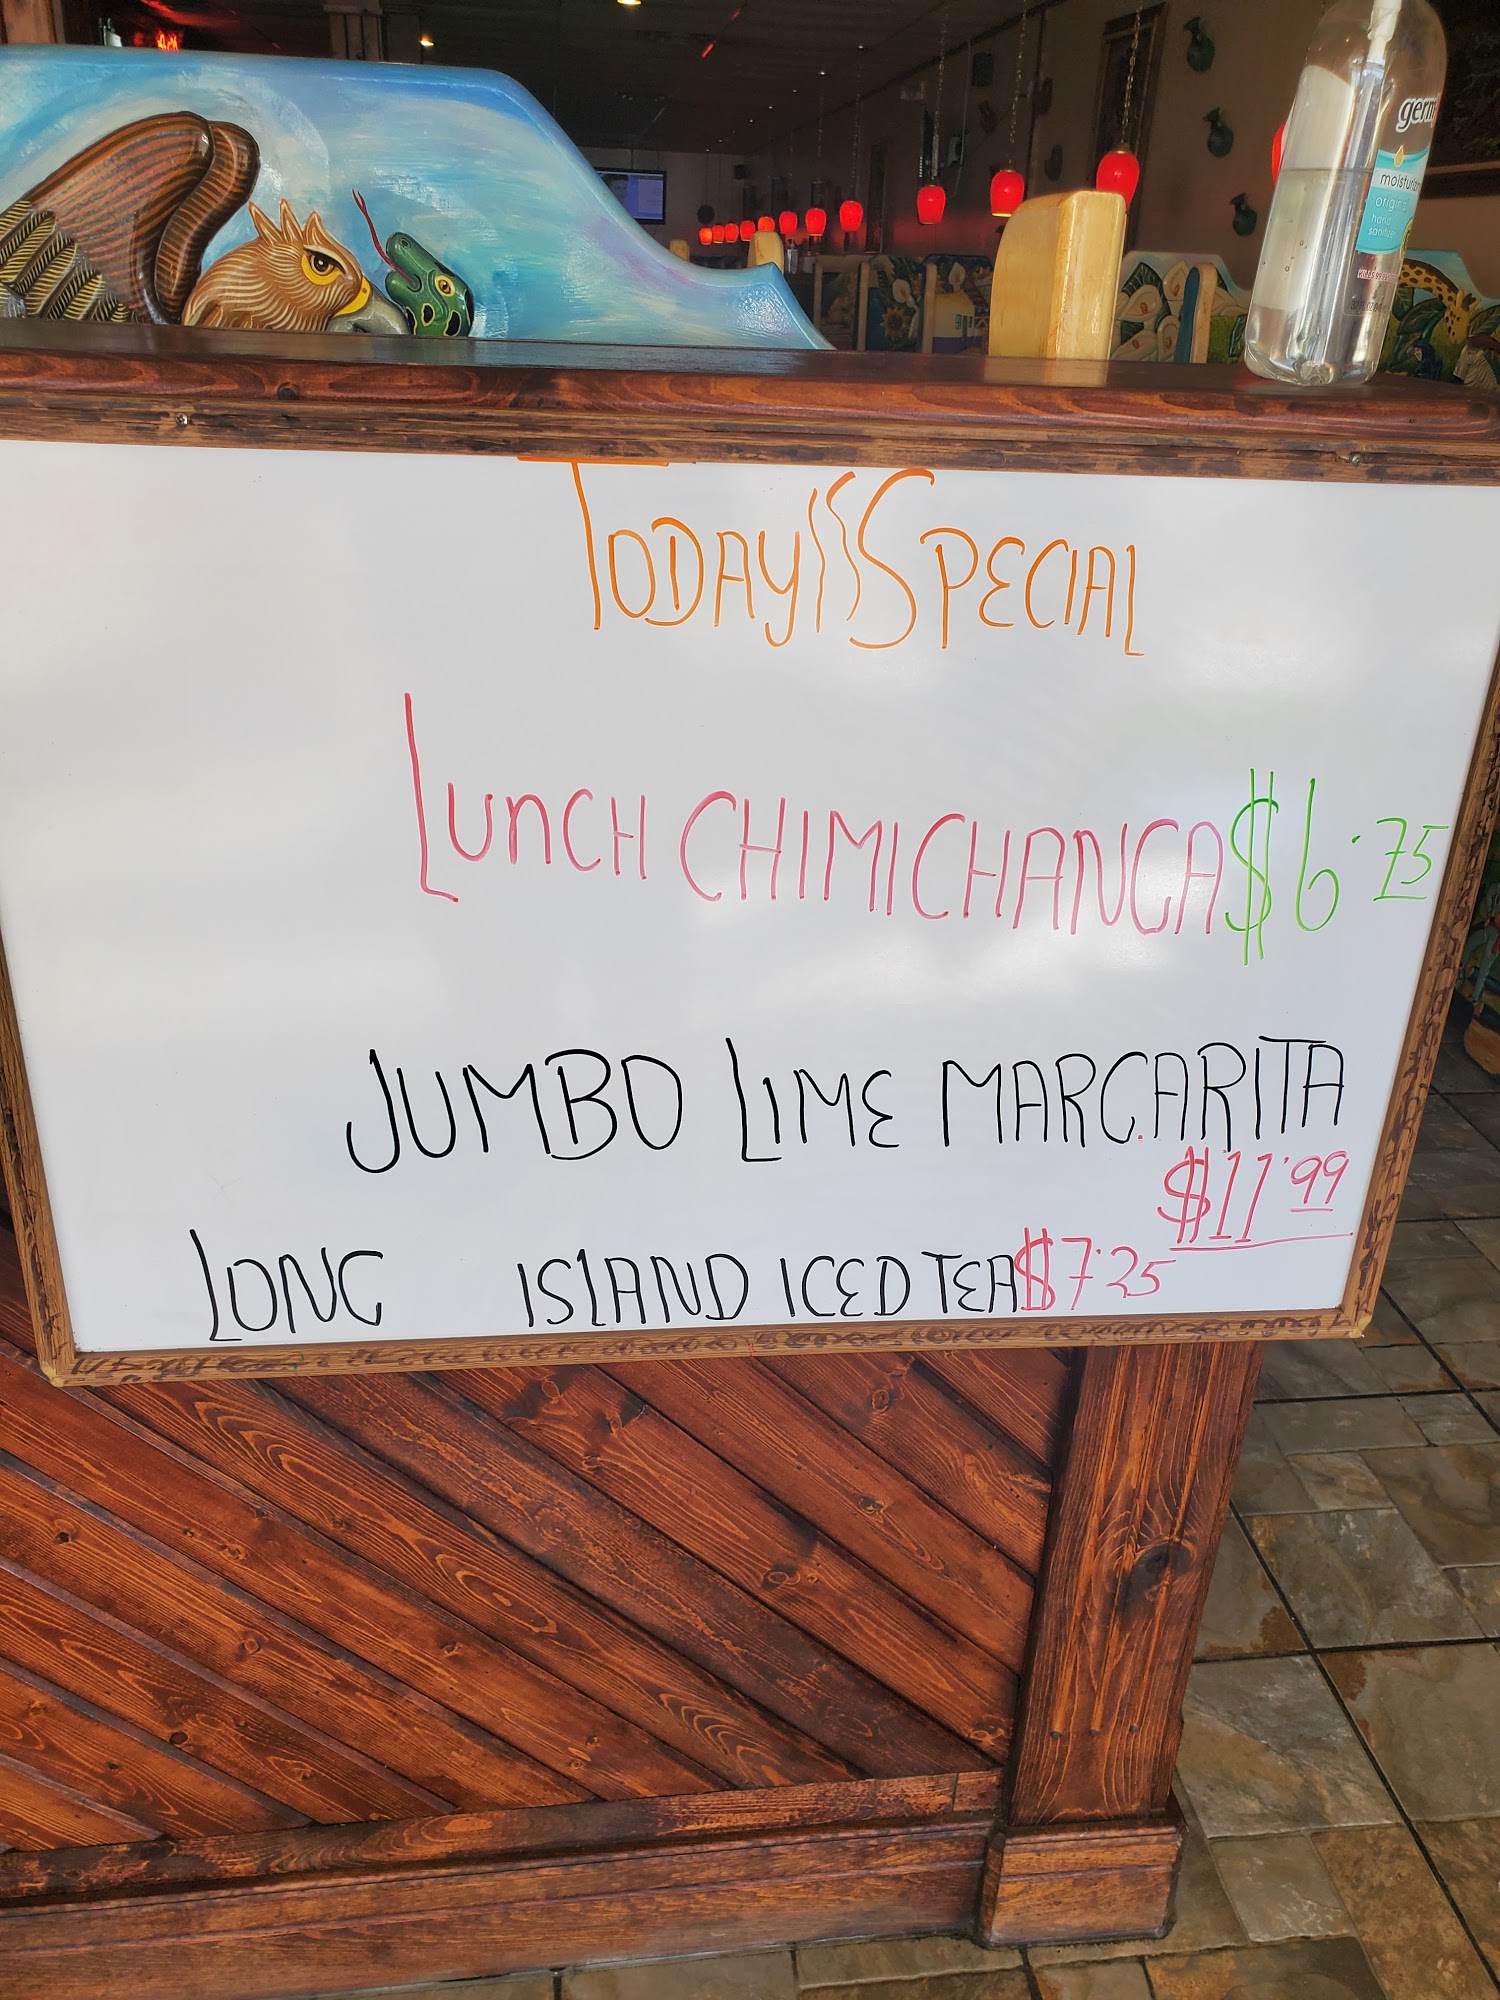 germ
moisturiz
original
hand
sanitizer
TODAY'S SPECIAL
LUNCH CHIMICHANGA $6.75
JUMBO LIME MARGARITA
$11.99
LONG ISLAND ICED TEA $7.25